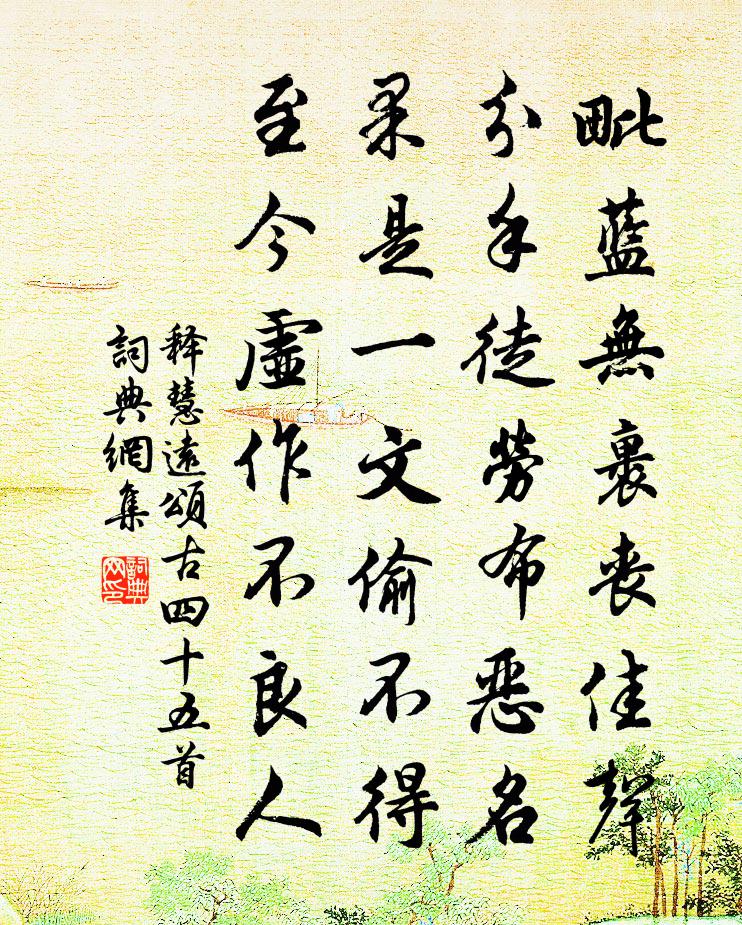 毗藍無裹丧佳聲
分手徒勞布恶名
果是一文偷不得
至今虛作不良人
释慧遠頌古四十五首
詞典網集
詞典网印